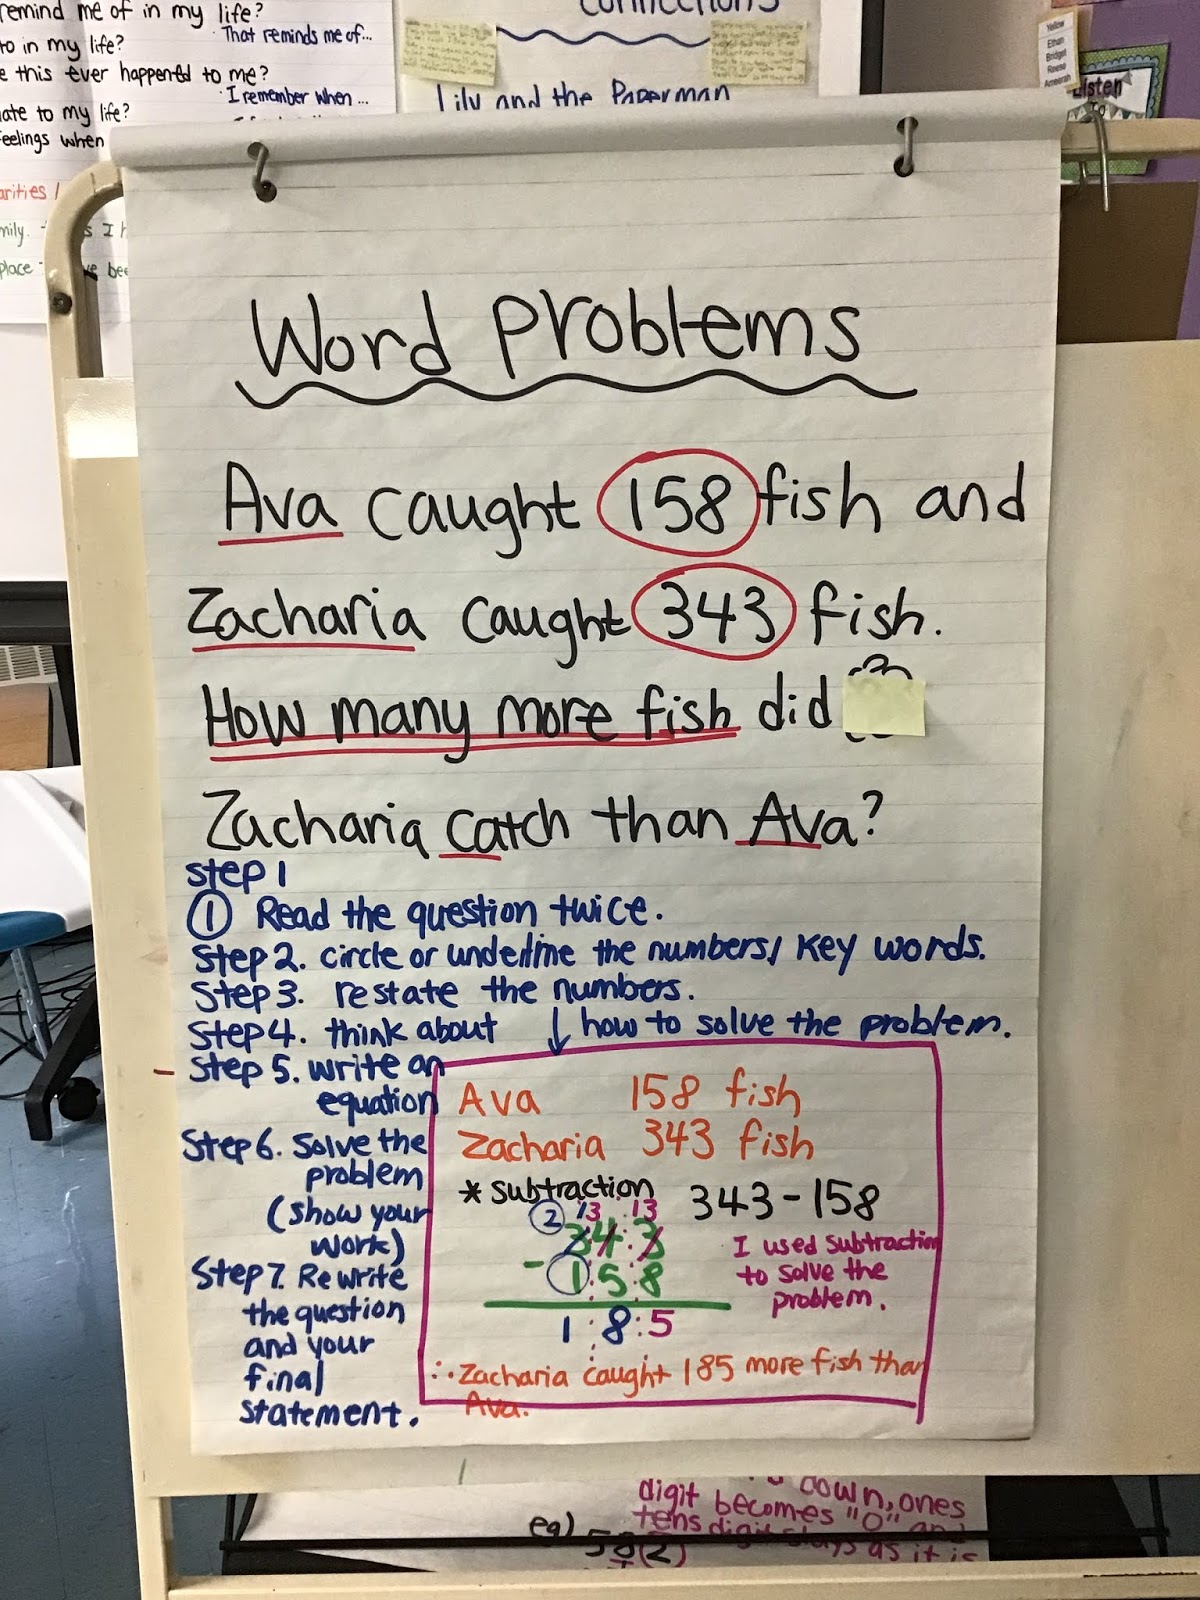 remind me of in my life?
That reminds me of...
to in my life?
e this ever happened to me?
I remember when...
ate to my life?
Feelings when
arities /
mily.
place
bee
connections
Lily and the Paperman
Yellow
Ethan
Bridget
Reese
Listen
To
Word Problems
Ava caught 158 fish and
Zacharia caught 343 fish.
How many more fish did
Zacharia catch than Ava?
Step 1
① Read the question twice.
Step 2. circle or underline the numbers/ key words.
Step 3. restate the numbers.
Step 4. think about ↓ how to solve the problem.
Step 5. write an
equation
Step 6. Solve the
problem
(show your
work)
Step 7. Rewrite
the question
and your
final
statement.
Ava 158 fish
Zacharia 343 fish
* Subtraction 343-158
2 13 13
343
- 158
185
I used subtraction
to solve the
problem.
∴ Zacharia caught 185 more fish than
Ava.
down, ones
digit becomes "0" and
tens digit stays as it is
eg) 58